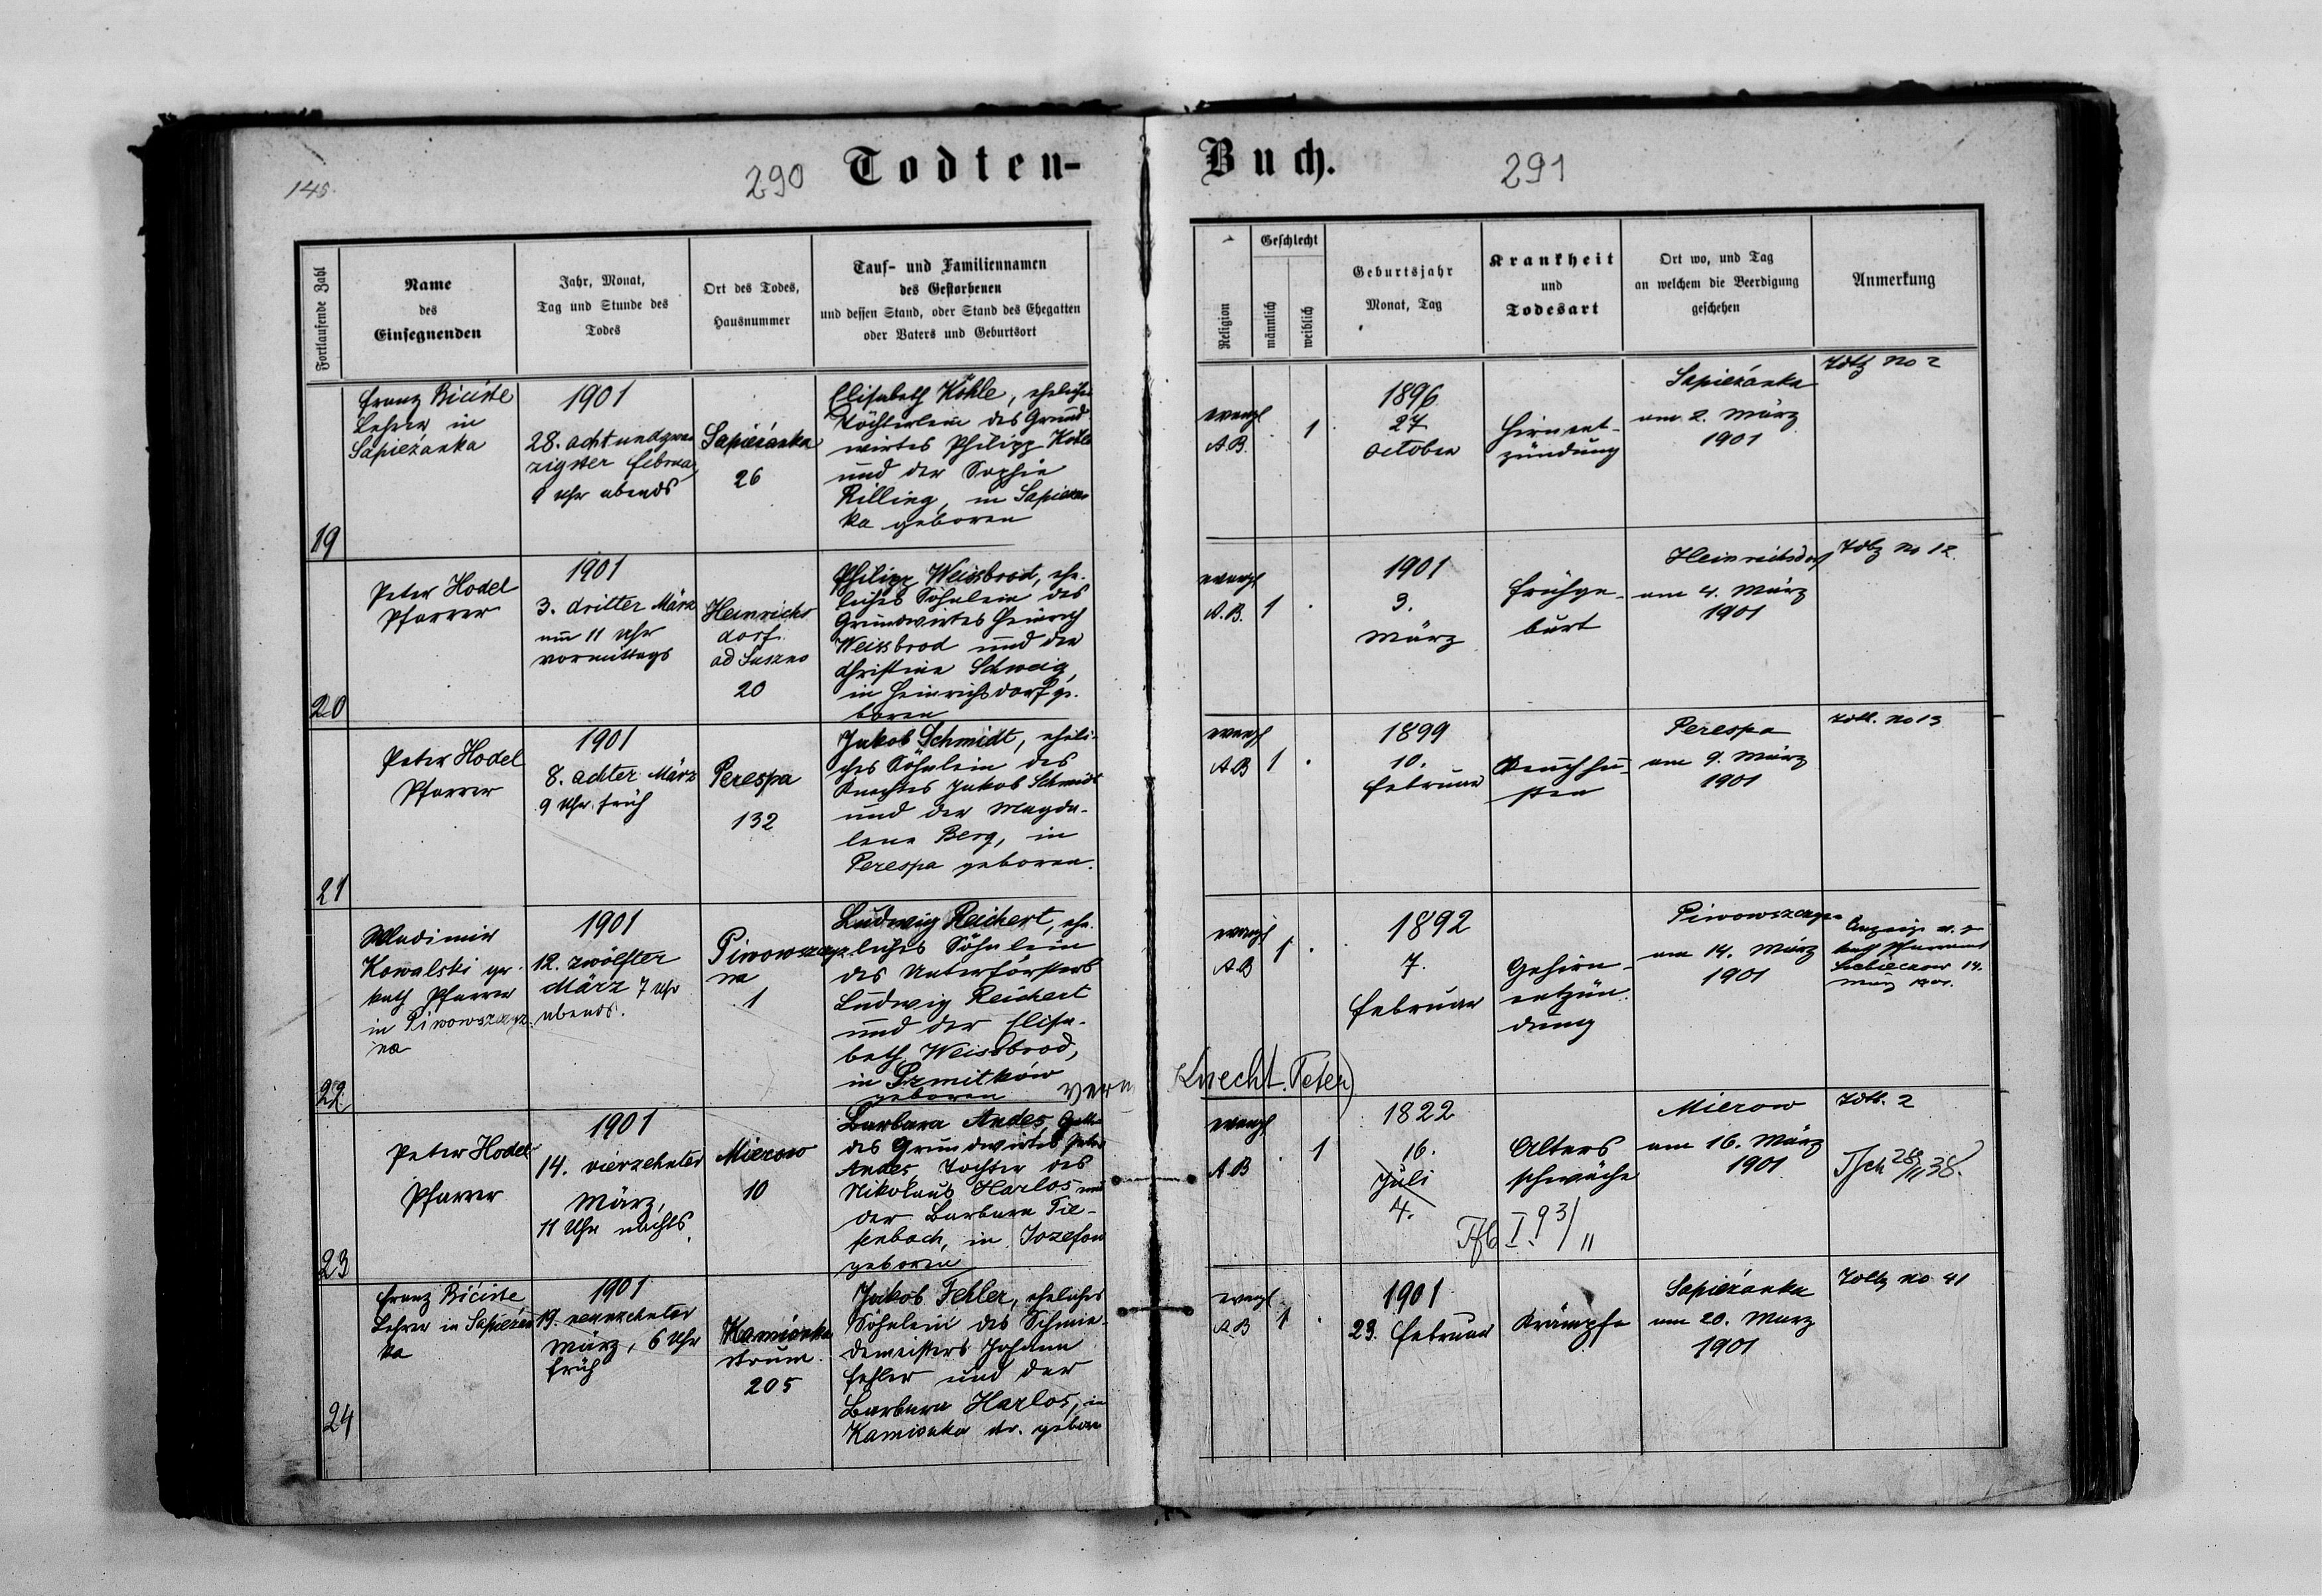 145.
290 Todten-
Buch. 291
Fortlaufende Zahl
Name
des
Einsegnenden
Jahr, Monat,
Tag und Stunde des
Todes
Ort des Todes,
Hausnummer
Tauf- und Familiennamen
des Gestorbenen
und dessen Stand, oder Stand des Ehegatten
oder Vaters und Geburtsort
Religion
Geschlecht
männlich
weiblich
Geburtsjahr
Monat, Tag
Krankheit
und
Todesart
Ort wo, und Tag
an welchem die Beerdigung
geschehen
Anmerkung
19
Franz
Lehrer in
Sapieżanka
1901
28. achtundzwan
zigster Februar
Uhr abends
Sapieżanka
26
Elisabeth Köhle, eheliches
Töchterlein des Grund
wirtes Philipp Köhle
und der Sophie
Rilling, in Sapiezan
ka geboren
evangl
A.B.
1
1896
27
October
Hirnent-
zündung
Sapieżanka
am 2. März
1901
No 2
20
Peter Hodel
Pfarrer
1901
3. dritter März
um 11 Uhr
vormittags
Heinrichs
dorf
ad Suszno
20
Philipp Weissbrod, ehe-
liches Söhnlein des
Grundwirtes Heinrich
Weissbrod und der
Christine Schweig,
in Heinrichsdorf ge-
boren
evangl
A.B.
1
1901
3.
März
Frühge-
burt
Heinrichsdorf
am 4. März
1901
No 12
21
Peter Hodel
Pfarrer
1901
8. achter März
9 Uhr früh
Perespa
132
Jakob Schmidt, eheli-
ches Söhnlein des
Knechtes Jakob Schmidt
und der Magda-
lena Berg, in
Perespa geboren.
evangl
AB
1
1899
10.
Februar
Keuchhu-
sten
Perespa
am 9. März
1901
No 13
22
Wladimir
Kowalski gr.
kath Pfarrer
in Piwowszczyz-
na
1901
12. zwölfter
März 7 Uhr
abends.
Piwowszczyz
na
1
Ludwig Reichert, ehe-
liches Söhnlein
des Unterförsters
Ludwig Reichert
und der Elisa-
beth Weissbrod,
in
geboren
evangl
AB
1
1892
7.
Februar
Gehirn-
entzün-
dung
am 14. März
1901
Anzeige
kath Pfarramt
14.
März 1901.
Knecht Peter)
23
Peter Hodel
Pfarrer
1901
14. vierzehnter
März,
11 Uhr nachts.
Mierow
10
Barbara Andes,
des Grundwirtes Peter
Andes, Tochter des
Nikolaus Harlos und
der Barbara
in Josefow
geboren
evangl
AB
1
1822
16.
Juli
4.
Alters
schwäche
I 93/11
Mierow
am 16. März
1901
2
28/11 38.
24
Franz
Lehrer in Sapieżan
ka
1901
19. neunzehnter
März, 6 Uhr
früh
Kamionka
strum.
205
Jakob Fehler, eheliches
Söhnlein des Schmie-
demeisters Johann
Fehler und der
Barbara Harlos, in
Kamionka str. geboren
evangl
AB
1
1901
23. Februar
Krämpfe
Sapieżanka
am 20. März
1901
No 41